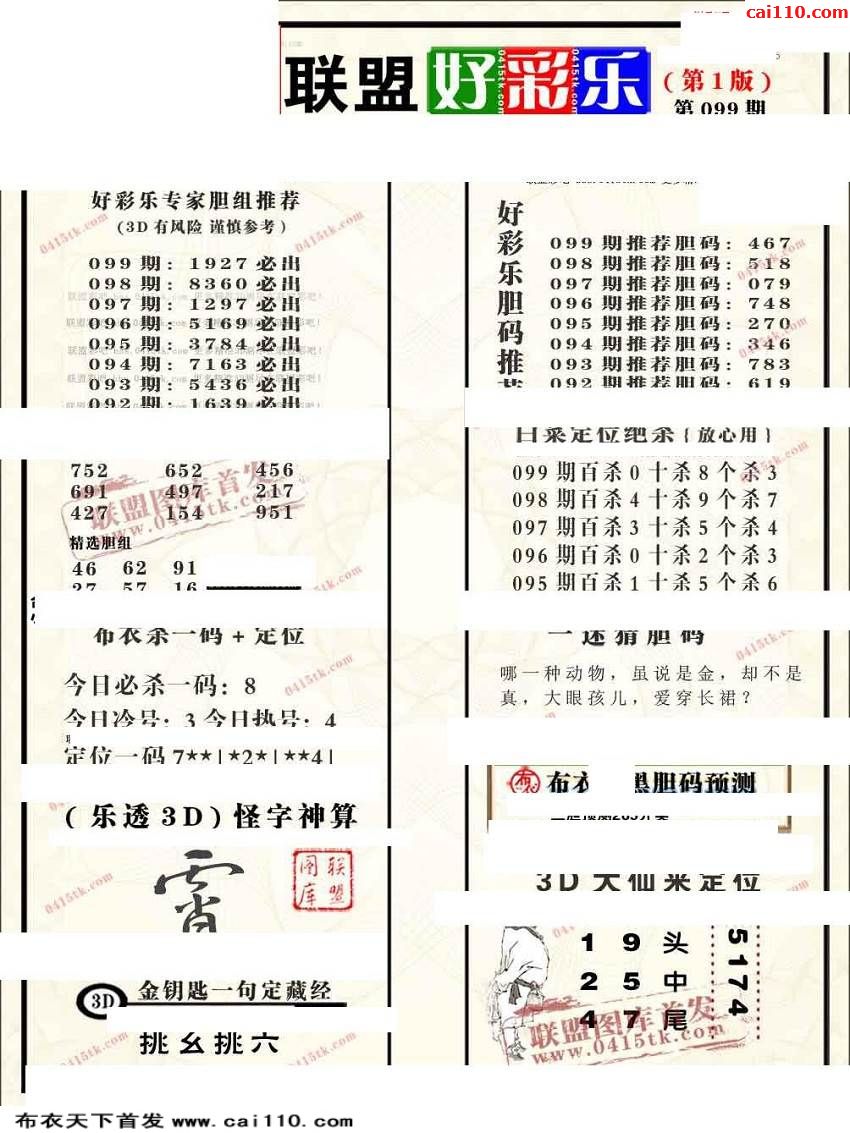 cai110.com
联盟好彩乐
(第1版)
第 099 期
好彩乐专家胆组推荐
(3D 有风险 谨慎参考)
099 期: 1927 必出
098 期: 8360 必出
097 期: 1297 必出
096 期: 5169 必出
095 期: 3784 必出
094 期: 7163 必出
093 期: 5436 必出
092 期: 1639 必出
752 652 456
691 497 217
427 154 951
精选胆组
46 62 91
27 57 16
布衣杀一码+定位
今日必杀一码: 8
今日冷号: 3 今日热号: 4
定位一码 7★★|★2★|★★4|
(乐透 3D) 怪字神算
霄
联盟图库
3D
金钥匙一句定藏经
挑幺挑六
好彩乐胆码推荐
099 期推荐胆码: 467
098 期推荐胆码: 518
097 期推荐胆码: 079
096 期推荐胆码: 748
095 期推荐胆码: 270
094 期推荐胆码: 346
093 期推荐胆码: 783
092 期推荐胆码: 619
白菜定位绝杀{放心用}
099 期百杀 0 十杀 8 个杀 3
098 期百杀 4 十杀 9 个杀 7
097 期百杀 3 十杀 5 个杀 4
096 期百杀 0 十杀 2 个杀 3
095 期百杀 1 十杀 5 个杀 6
一迷猜胆码
哪一种动物，虽说是金，却不是
真，大眼孩儿，爱穿长裙？
布衣 胆码预测
3D 大仙来定位
1 9 头
2 5 中
4 7 尾
5174
联盟图库首发
www.0415tk.com
布衣天下首发 www.cai110.com